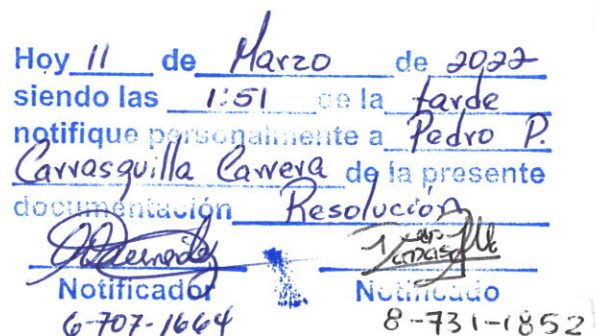 Hoy 11 de Marzo de 2022
siendo las 1:51 de la tarde
notifique personalmente a Pedro P.
Carrasquilla Carrera de la presente
documentación Resolución
Notificador Notificado
6-707-1664 8-731-1852